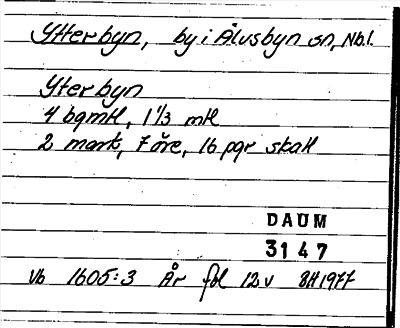 Ytterbyn, by i Älvsbyn sn, Nb.l.
Yterbyn
4 bgmtl, 1 1/3 mtl
2 mark, 7 öre, 16 pgr skatt
DAUM
3147
Vb 1605:3 År fol 12v BH1977